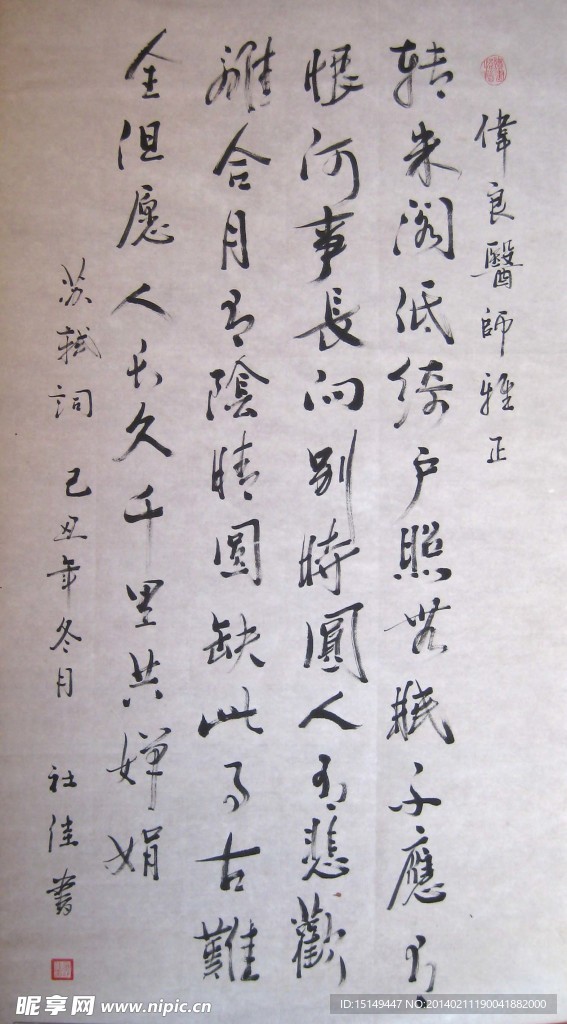 偉良醫師雅正
转朱阁低绮户照無眠不應有
恨何事長向别時圓人有悲歡
離合月有陰晴圆缺此事古難
全但愿人长久千里共嬋娟
苏軾詞 己丑年冬月 社佳書
昵享网 www.nipic.cn
ID:15149447 NO:20140211190041882000